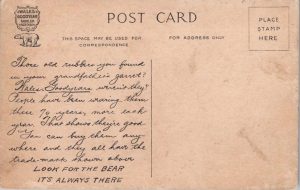 WALES
GOODYEAR
POST CARD
THIS SPACE MAY BE USED FOR
CORRESPONDENCE
FOR ADDRESS ONLY
PLACE
STAMP
HERE
Those old rubbers you found
in your grandfather's garret?
Wales-Goodyears, weren't they?
People have been wearing them
these 70 years, more each
year. That shows they're good.
You can buy them any-
where and they all have the
trade-mark shown above
LOOK FOR THE BEAR
IT'S ALWAYS THERE